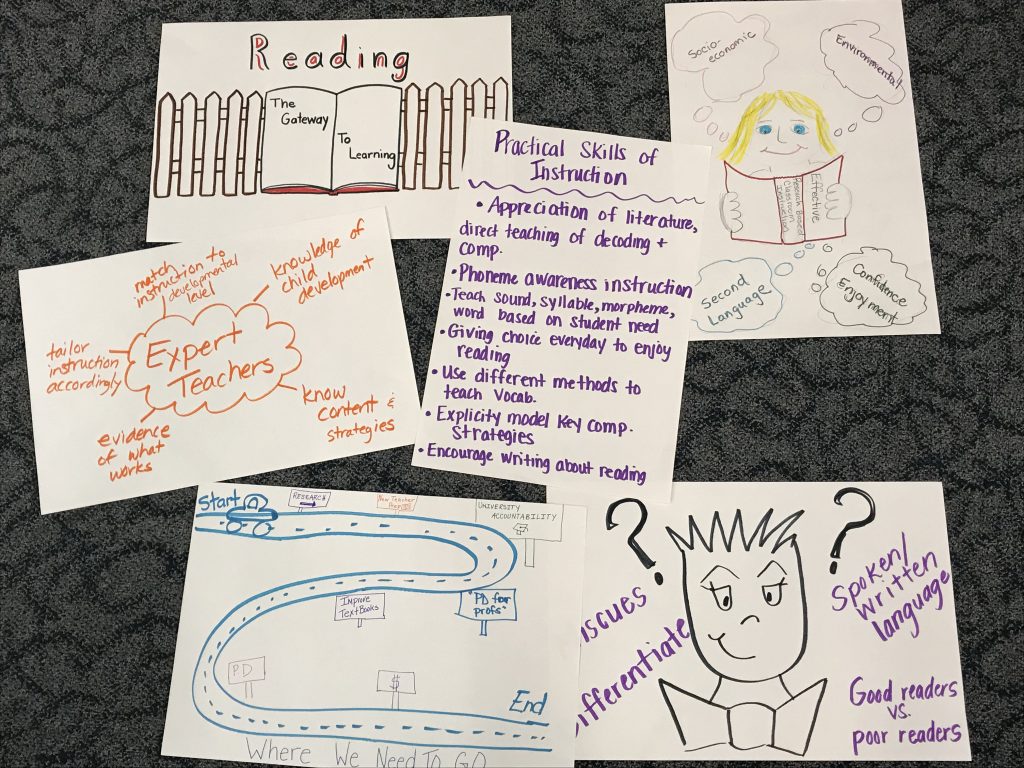 Reading
The
Gateway
To
Learning
Socio-
economic
Environmental
Effective
Research Based
Classroom
Instruction
Second
Language
Confidence
Enjoyment
Practical Skills of
Instruction
• Appreciation of literature,
direct teaching of decoding +
comp.
• Phoneme awareness instruction
• Teach sound, syllable, morpheme,
word based on student need
• Giving choice everyday to enjoy
reading
• Use different methods to
teach vocab.
• Explicity model key comp.
strategies
• Encourage writing about reading
match
instruction to
developmental
level
knowledge of
child
development
tailor
instruction
accordingly
Expert
Teachers
know
content &
strategies
evidence
of what
works
Start
RESEARCH
New Teacher
UNIVERSITY
ACCOUNTABILITY
Improve
TextBooks
"PD for
profs"
PD
$
End
Where We Need To GO
? ?
iscues
ifferentiate
Spoken/
written
language
Good readers
vs.
poor readers